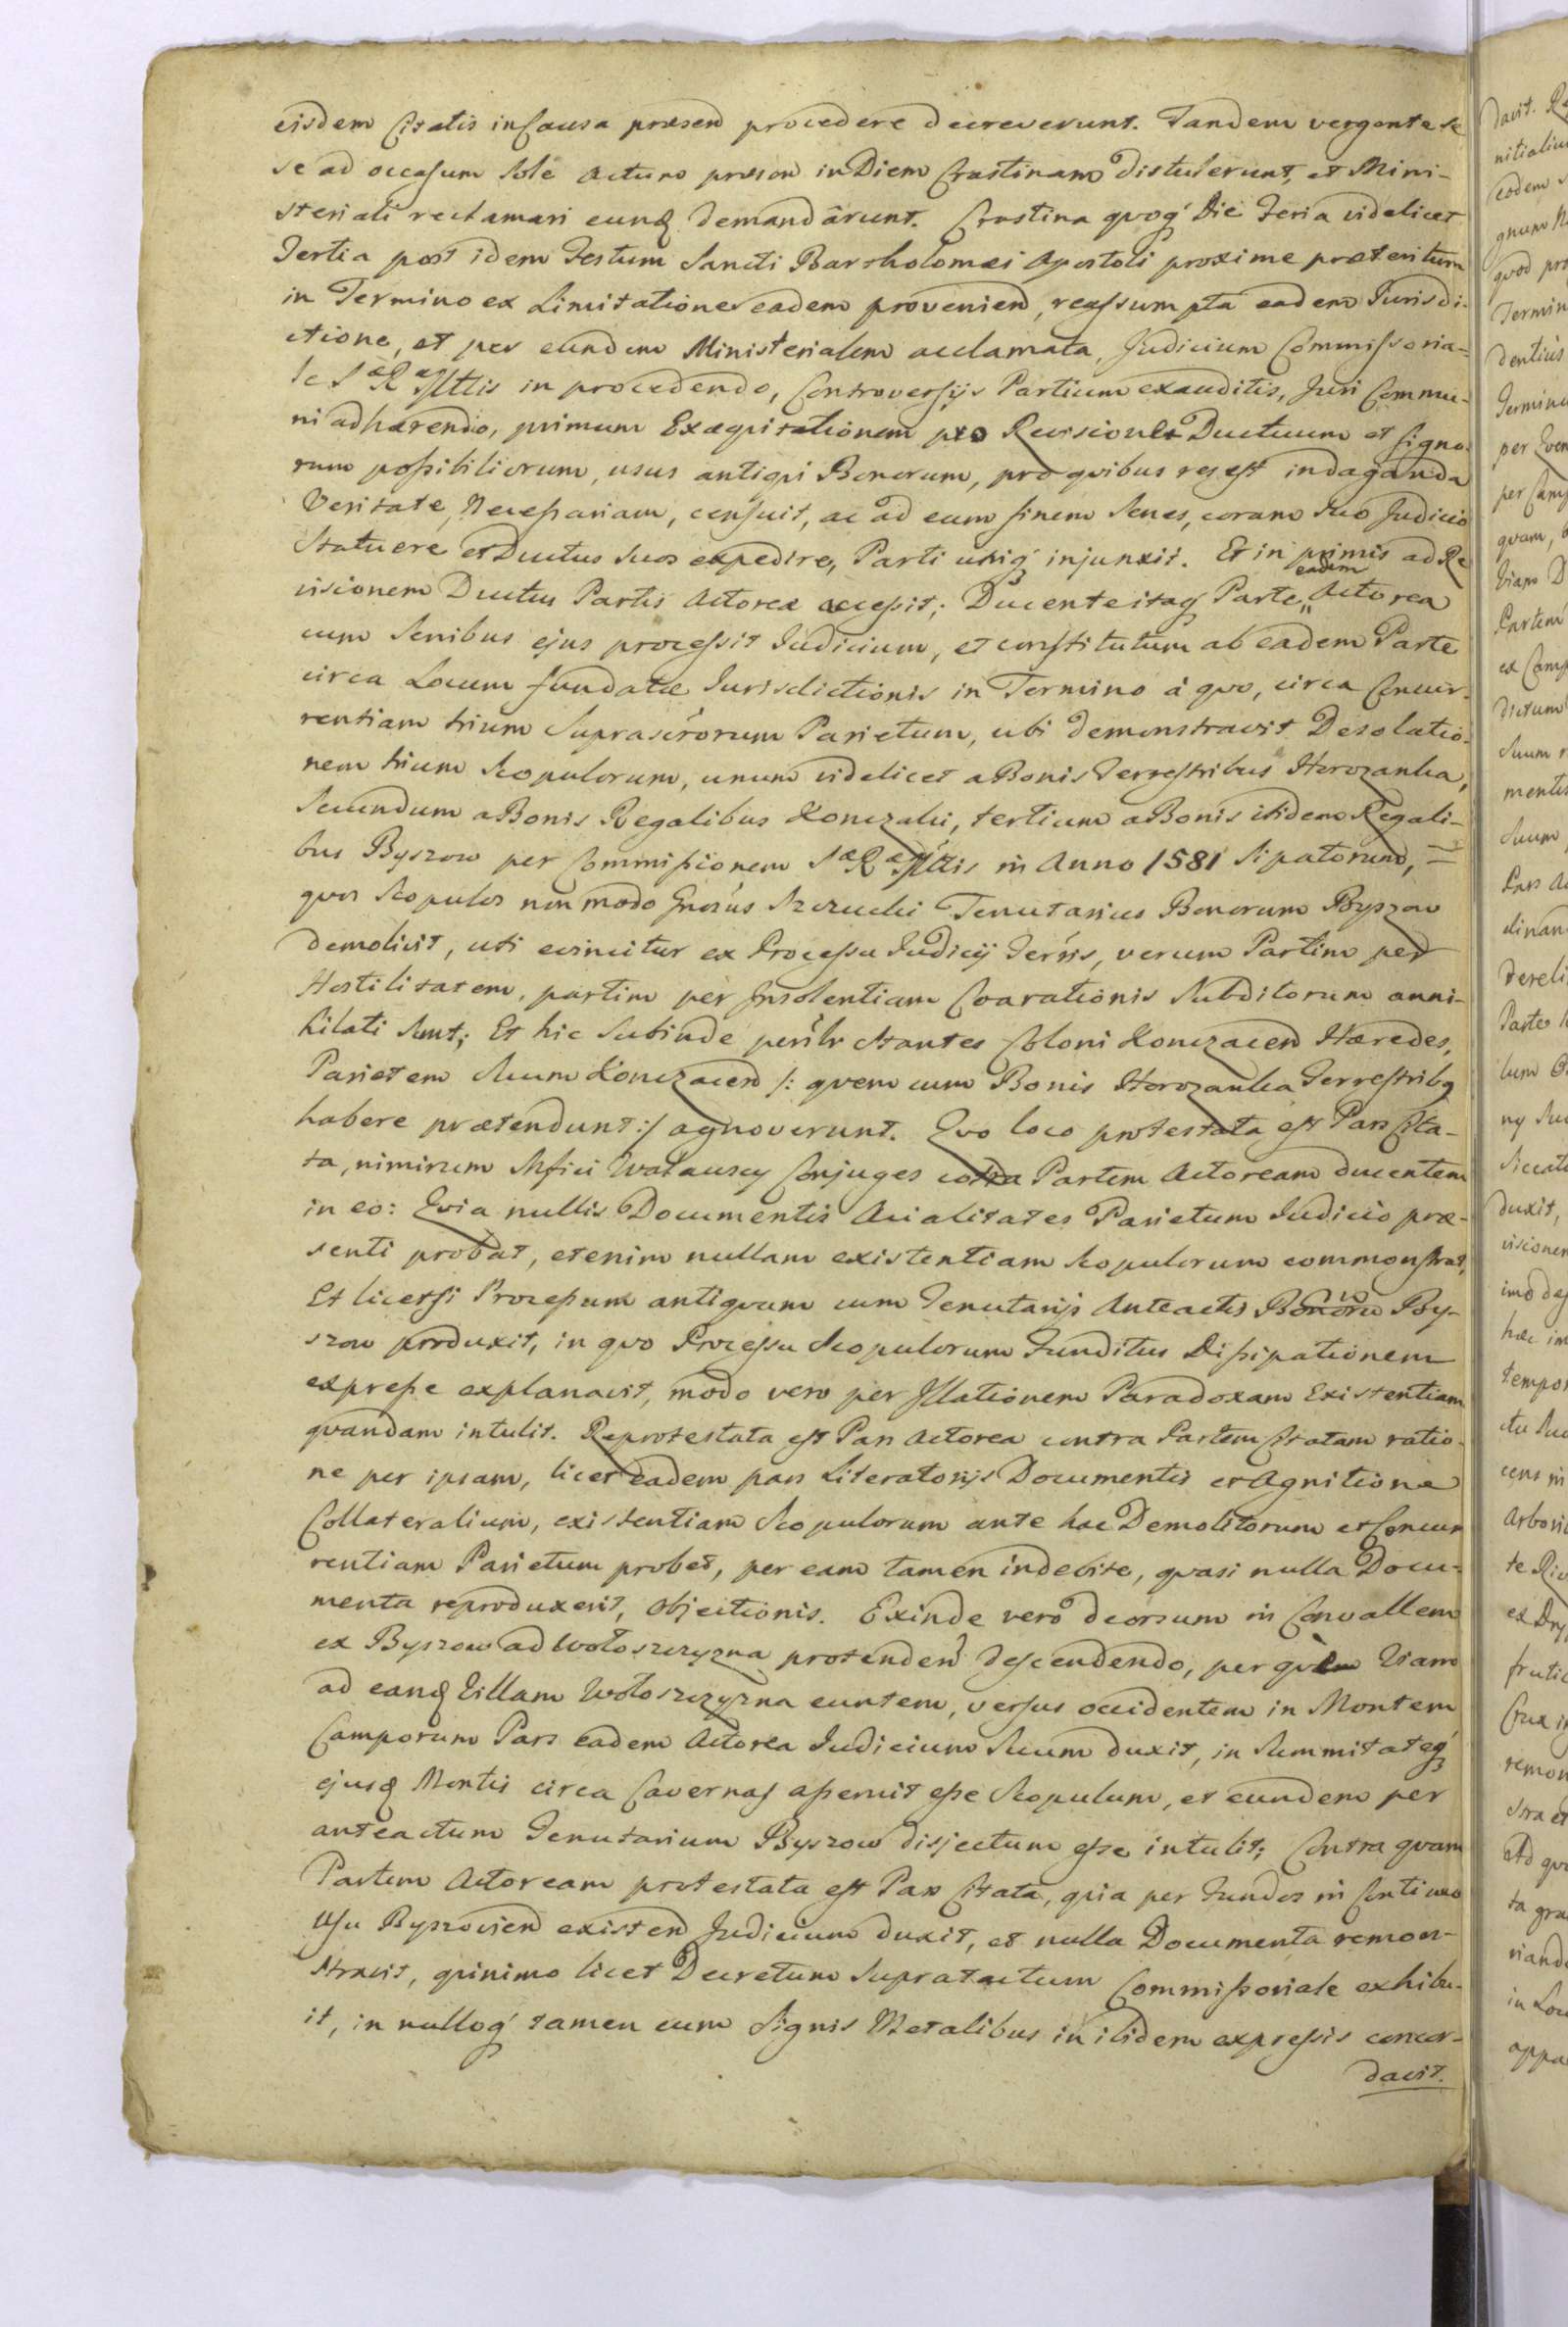 eisdem Citatis in Causa præsen procedere decreverunt. Tandem vergente se
se ad occasum Sole Actum præsen in Diem Crastinam distulerunt, et Mini-
steriali reclamari eunq demandârunt. Crastina qvoq Die Feria videlicet
Tertia post idem Festum Sancti Bartholomæi Apostoli proxime præteritum
in Termino ex Limitatione eadem provenien, reassumpta eadem Jurisdi-
ctione, et per eundem Ministerialem acclamata, Judicium Commissoria-
le Sæ Ræ Mttis in procedendo, Controversijs Partium exauditis, Juri Commu-
ni adhærendo, primum Exæqvitationem pro Revisione Ductuum et Signo-
rum possibiliorum, usus antiqvi Bonorum, pro qvibus res est indaganda
Veritate, Necessariam, censuit, ac ad eum finem Senes, coram suo Judicio
Statuere et Ductus suos expedire, Parti utriq injunxit. Et in primis ad Re
visionem Ductus Partis Actoreæ accessit; Ducente itaq Parte eadem Actorea
cum Senibus ejus processit Judicium, et constitutum ab eadem Parte
circa Locum fundatæ Jurisdictionis in Termino à qvo, circa Concur-
rentiam trium Suprascrorum Parietum, ubi demonstravit Desolatio-
nem trium Scopulorum, unum videlicet a Bonis Terrestribus Horozanka,
Secundum a Bonis Regalibus Konczaki, tertium a Bonis itidem Regali-
bus Byszow per Commissionem Sæ Ræ Mttis in Anno 1581 Sipatorum,
qvos Scopulos non modo Gnosus Szczucki Tenutarius Bonorum Byszow
demolivit, uti evincitur ex Processu Judicij Terris, verum Partim per
Hostilitatem, partim per Insolentiam Coarationis Subditorum anni-
hilati sunt; Et hic Subinde perslr stantes Coloni Konczacen Hæredes,
Parietem Suum Konczacen /: qvem cum Bonis Horozanka Terrestribq
habere prætendunt :/ agnoverunt. Qvo loco protestata est Pars Cita-
ta, nimirum Mfici Watauscy Conjuges contra Partem Actoream ducentem
in eo: Qvia nullis Documentis Acialitates Parietum Judicio præ-
senti probat, etenim nullam existentiam Scopulorum commonstrat,
Et licetsi Processum antiqvum cum Tenutarijs Anteactis Bonoru By-
szow produxit, in qvo Processu Scopulorum Funditus Dissipationem
expresse explanavit, modo vero per Illationem Paradoxam Existentiam
qvandam intulit. Reprotestata est Pars Actorea contra Partem Citatam ratio-
ne per ipsam, licet eadem pars Literatorijs Documentis et Agnitione
Collateralium, existentiam Scopulorum ante hac Demolitorum et Concur
rentiam Parietum probet, per eam tamen indebite, qvasi nulla Docu-
menta reproduxerit, Objectionis. Exinde vero deorsum in Convallem
ex Byszow ad Wołoszczyzna protenden descendendo, per qvam Viam
ad eanq Villam Wołoszczyzna euntem, versus occidentem in Montem
Camporum Pars eadem Actorea Judicium Suum duxit, in Summitateq
ejusq Montis circa Cavernas asseruit esse Scopulum, et eundem per
anteactum Tenutarium Byszow disjectum esse intulit; Contra qvam
Partem Actoream protestata est Pars Citata, qvia per Fundos in Continuo
Usu Byszovien existen Judicium duxit, et nulla Documenta remon-
stravit, qvinimo licet Decretum Supratactum Commissoriale exhibu-
it, in nulloq tamen cum Signis Metalibus in ibidem expressis concor-
davit.